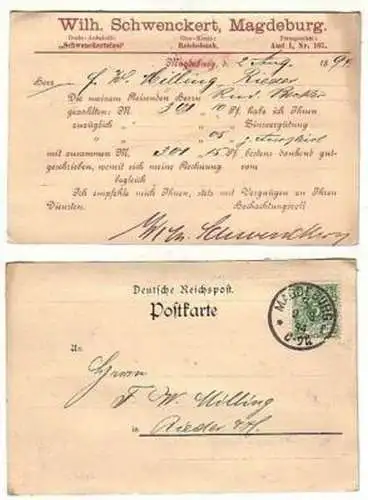 Wilh. Schwenckert, Magdeburg.
Giro-Konto:
"Schwenckerteisen"
Reichsbank.
Amt I, Nr. 107.
Magdeburg, d. 2 Aug. 1894
Herr F. W. Milling Rieder
Die meinem Reisenden Herrn
gezahlten: M 301 10 Pf. habe ich Ihnen
zuzüglich " " Zinsvergütung
" " 05
mit zusammen M. 301 15 Pf. bestens dankend gut-
geschrieben, womit sich meine Rechnung vom
beglich
Ich empfehle mich Ihnen, stets mit Vergnügen zu Ihren
Diensten. Hochachtungsvoll
Wilh. Schwenckert
Deutsche Reichspost.
Postkarte
An
Herrn
F. W. Milling
in Rieder a/H.
MAGDEBURG
94